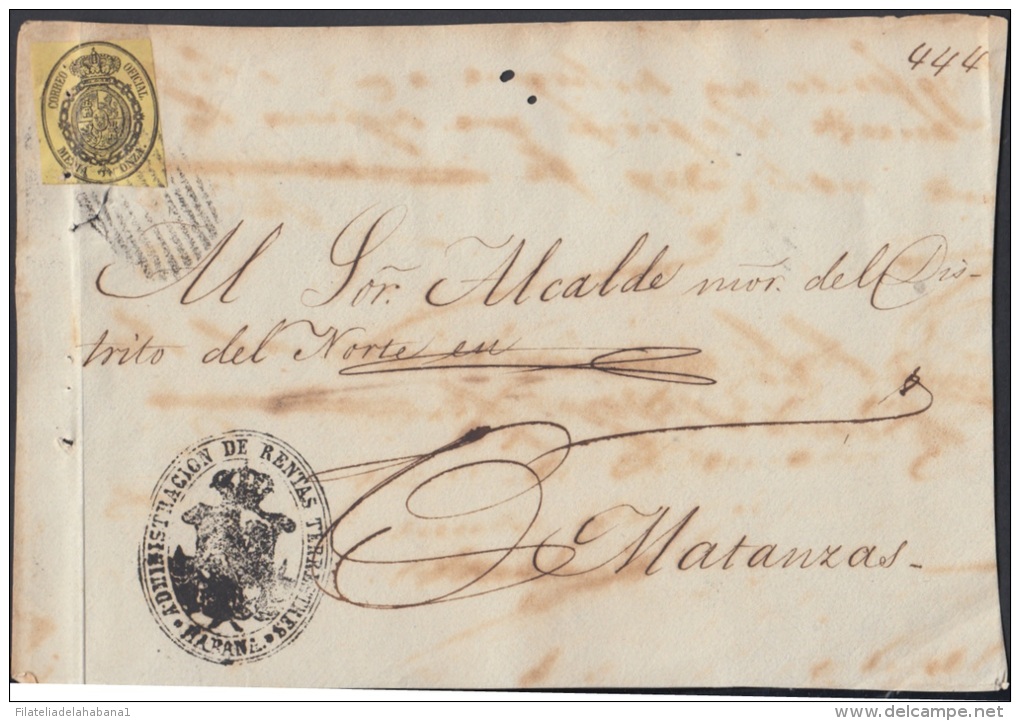 444
CORREO OFICIAL
MEDIA ONZA.
Al Sor. Alcalde mor. del Dis-
trito del Norte en
Matanzas-
ADMINISTRACION DE RENTAS TERRESTRES
HABANA.
Filateliadelahabana1
delcampe.net